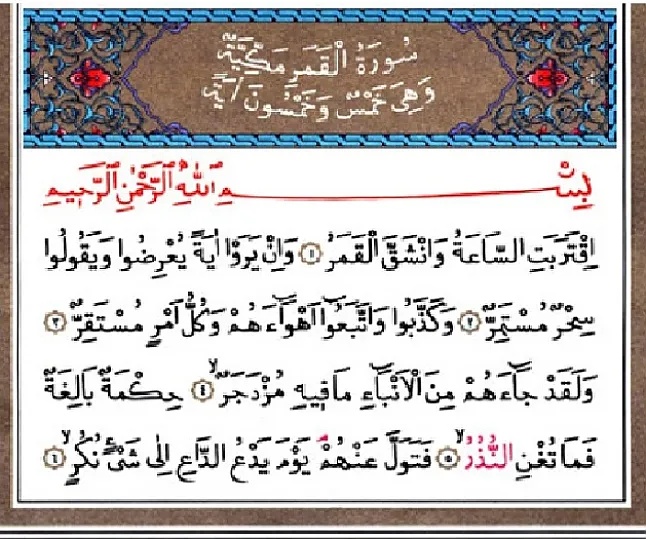 سُورَةُ الْقَمَرِ مَكِّيَّةٌ
وَهِىَ خَمْسٌ وَخَمْسُونَ اٰيَةً
بِسْمِ اللّٰهِ الرَّحْمٰنِ الرَّحٖيمِ
اِقْتَرَبَتِ السَّاعَةُ وَانْشَقَّ الْقَمَرُ ١ وَاِنْ يَرَوْا اٰيَةً يُعْرِضُوا وَيَقُولُوا
سِحْرٌ مُسْتَمِرٌّ ٢ وَكَذَّبُوا وَاتَّبَعُٓوا اَهْوَٓاءَهُمْ وَكُلُّ اَمْرٍ مُسْتَقِرٌّ ٣
وَلَقَدْ جَٓاءَهُمْ مِنَ الْاَنْبَٓاءِ مَا فٖيهِ مُزْدَجَرٌۙ ٤ حِكْمَةٌ بَالِغَةٌ
فَمَا تُغْنِ النُّذُرُۙ ٥ فَتَوَلَّ عَنْهُمْۘ يَوْمَ يَدْعُ الدَّاعِ اِلٰى شَیْءٍ نُكُرٍۙ ٦